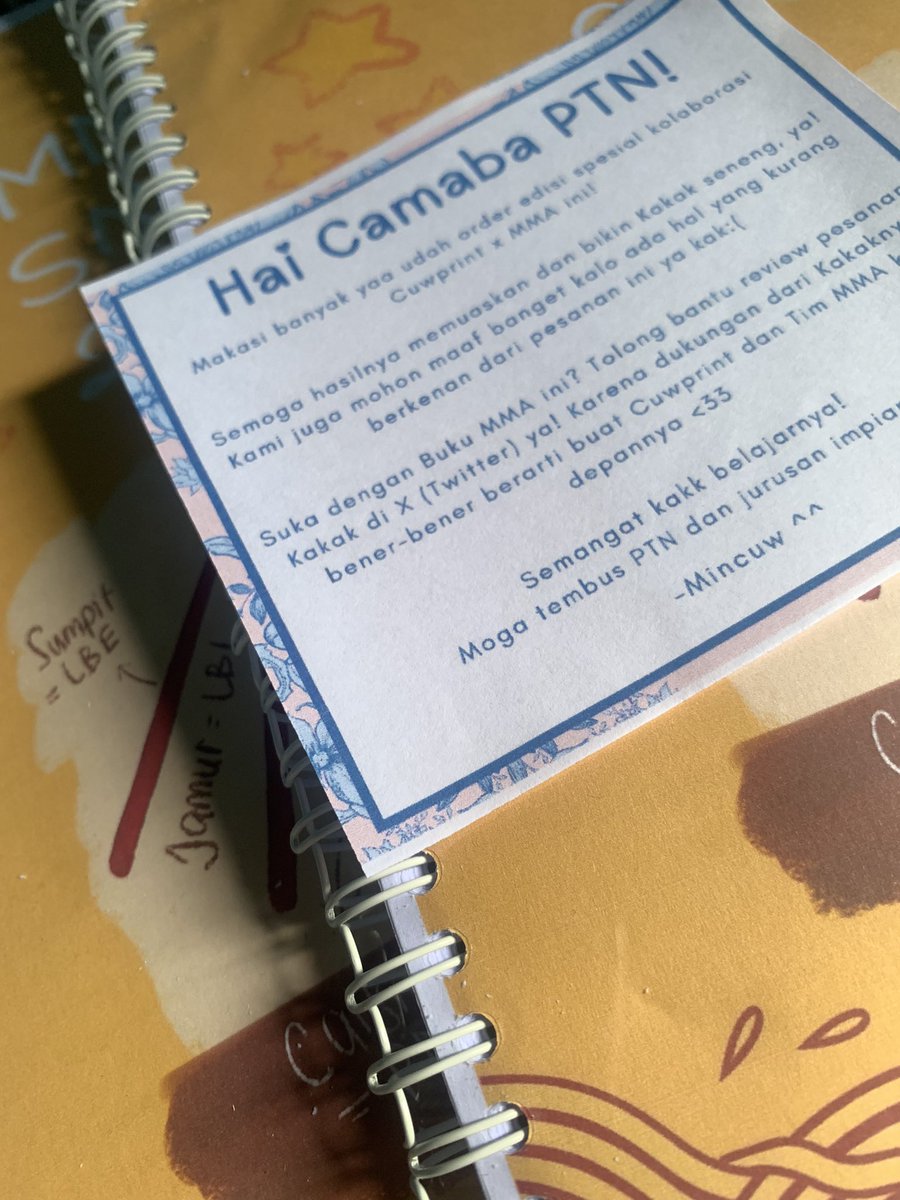 Hai Camaba PTN!
Makasi banyak yaa udah order edisi spesial kolaborasi
Cuwprint x MMA ini!
Semoga hasilnya memuaskan dan bikin Kakak seneng, ya!
Kami juga mohon maaf banget kalo ada hal yang kurang
berkenan dari pesanan ini ya kak:(
Suka dengan Buku MMA ini? Tolong bantu review pesanan
Kakak di X (Twitter) ya! Karena dukungan dari
bener-bener berarti buat Cuwprint dan Tim MMA
depannya <33
Semangat kakk belajarnya!
Moga tembus PTN dan jurusan
-Mincuw ^^
Sumpit
= LBE
↑
Jamur =